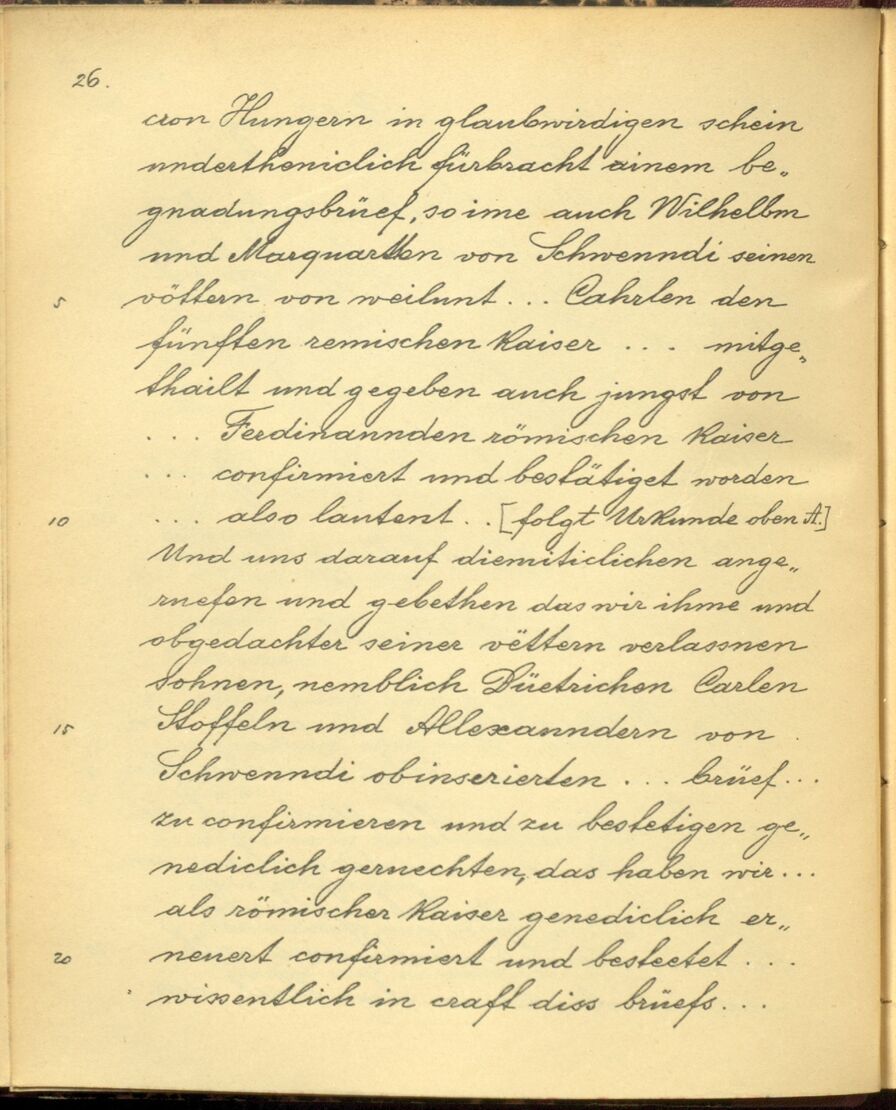 26.
cron Hungern in glaubwirdigen schein
undertheniclich fürbracht ainem be„
gnadungsbrüef, so ime auch Wilhelbm
und Marquartten von Schwenndi seinen
5 vöttern von weilunt ... Cahrlen den
fünften remischen Kaiser ... mitge„
thailt und gegeben auch jungst von
... Ferdinannden römischen Kaiser
... confirmiert und bestätiget worden
10 ... also lautent .. [folgt Urkunde oben A.]
Und uns darauf diemiticlichen ange„
ruefen und gebethen das wir ihme und
obgedachter seiner vëttern verlassnen
sohnen, nemblich Düetrichen Carlen
15 Stoffeln und Allexanndern von
Schwenndi obinserierten ... brüef ...
zu confirmieren und zu bestetigen ge„
nediclich geruechten, das haben wir ...
als römischer Kaiser genediclich er„
20 neuert confirmiert und besteetet ...
wissentlich in craft diss brüefs ...